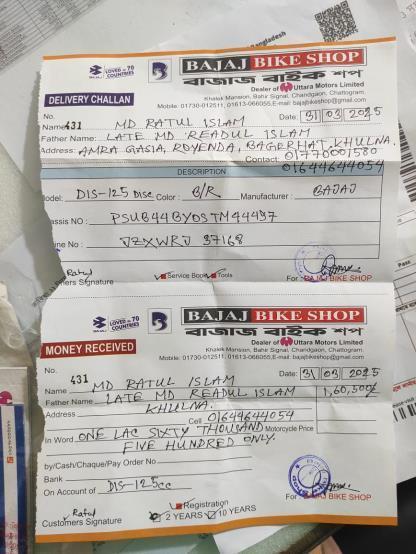 Bangladesh
LOVED IN 70 COUNTRIES
BAJAJ BIKE SHOP
বাজাজ বাইক শপ
Dealer of Uttara Motors Limited
DELIVERY CHALLAN
Khalek Mansion, Bahir Signal, Chandgaon, Chattogram.
Mobile: 01730-012511, 01613-066055, E-mail: bajajbikeshop@gmail.com
No. 431
Date: 31 03 2025
Name MD RATUL ISLAM
Father Name: LATE MD READUL ISLAM
Address: AMRA GASIA, ROYENDA, BAGERHAT, KHULNA.
Contact: 01770001580
01644644054
DESCRIPTION
Model: DIS-125 Disc Color: B/R Manufacturer: BAJAJ
assis NO: PSUB44BYOSTM44497
ine No: JZXWRJ 97168
Ratul
mers Signature
Service Book Tools
For: BAJAJ BIKE SHOP
LOVED IN 70 COUNTRIES
BAJAJ BIKE SHOP
বাজাজ বাইক শপ
Dealer of Uttara Motors Limited
MONEY RECEIVED
Khalek Mansion, Bahir Signal, Chandgaon, Chattogram.
Mobile: 01730-012511, 01613-066055, E-mail: bajajbikeshop@gmail.com
No. 431
Date: 31 03 2025
Name MD RATUL ISLAM
Father Name LATE MD READUL ISLAM 1,60,500/-
Address KHULNA. Cell 01644644054
In Word ONE LAC SIXTY THOUSAND Motorcycle Price
FIVE HUNDRED ONLY.
by/Cash/Chaque/Pay Order No
Bank
On Account of DIS-125cc
Registration
2 YEARS 10 YEARS
Ratul
Customers Signature
For: BAJAJ BIKE SHOP